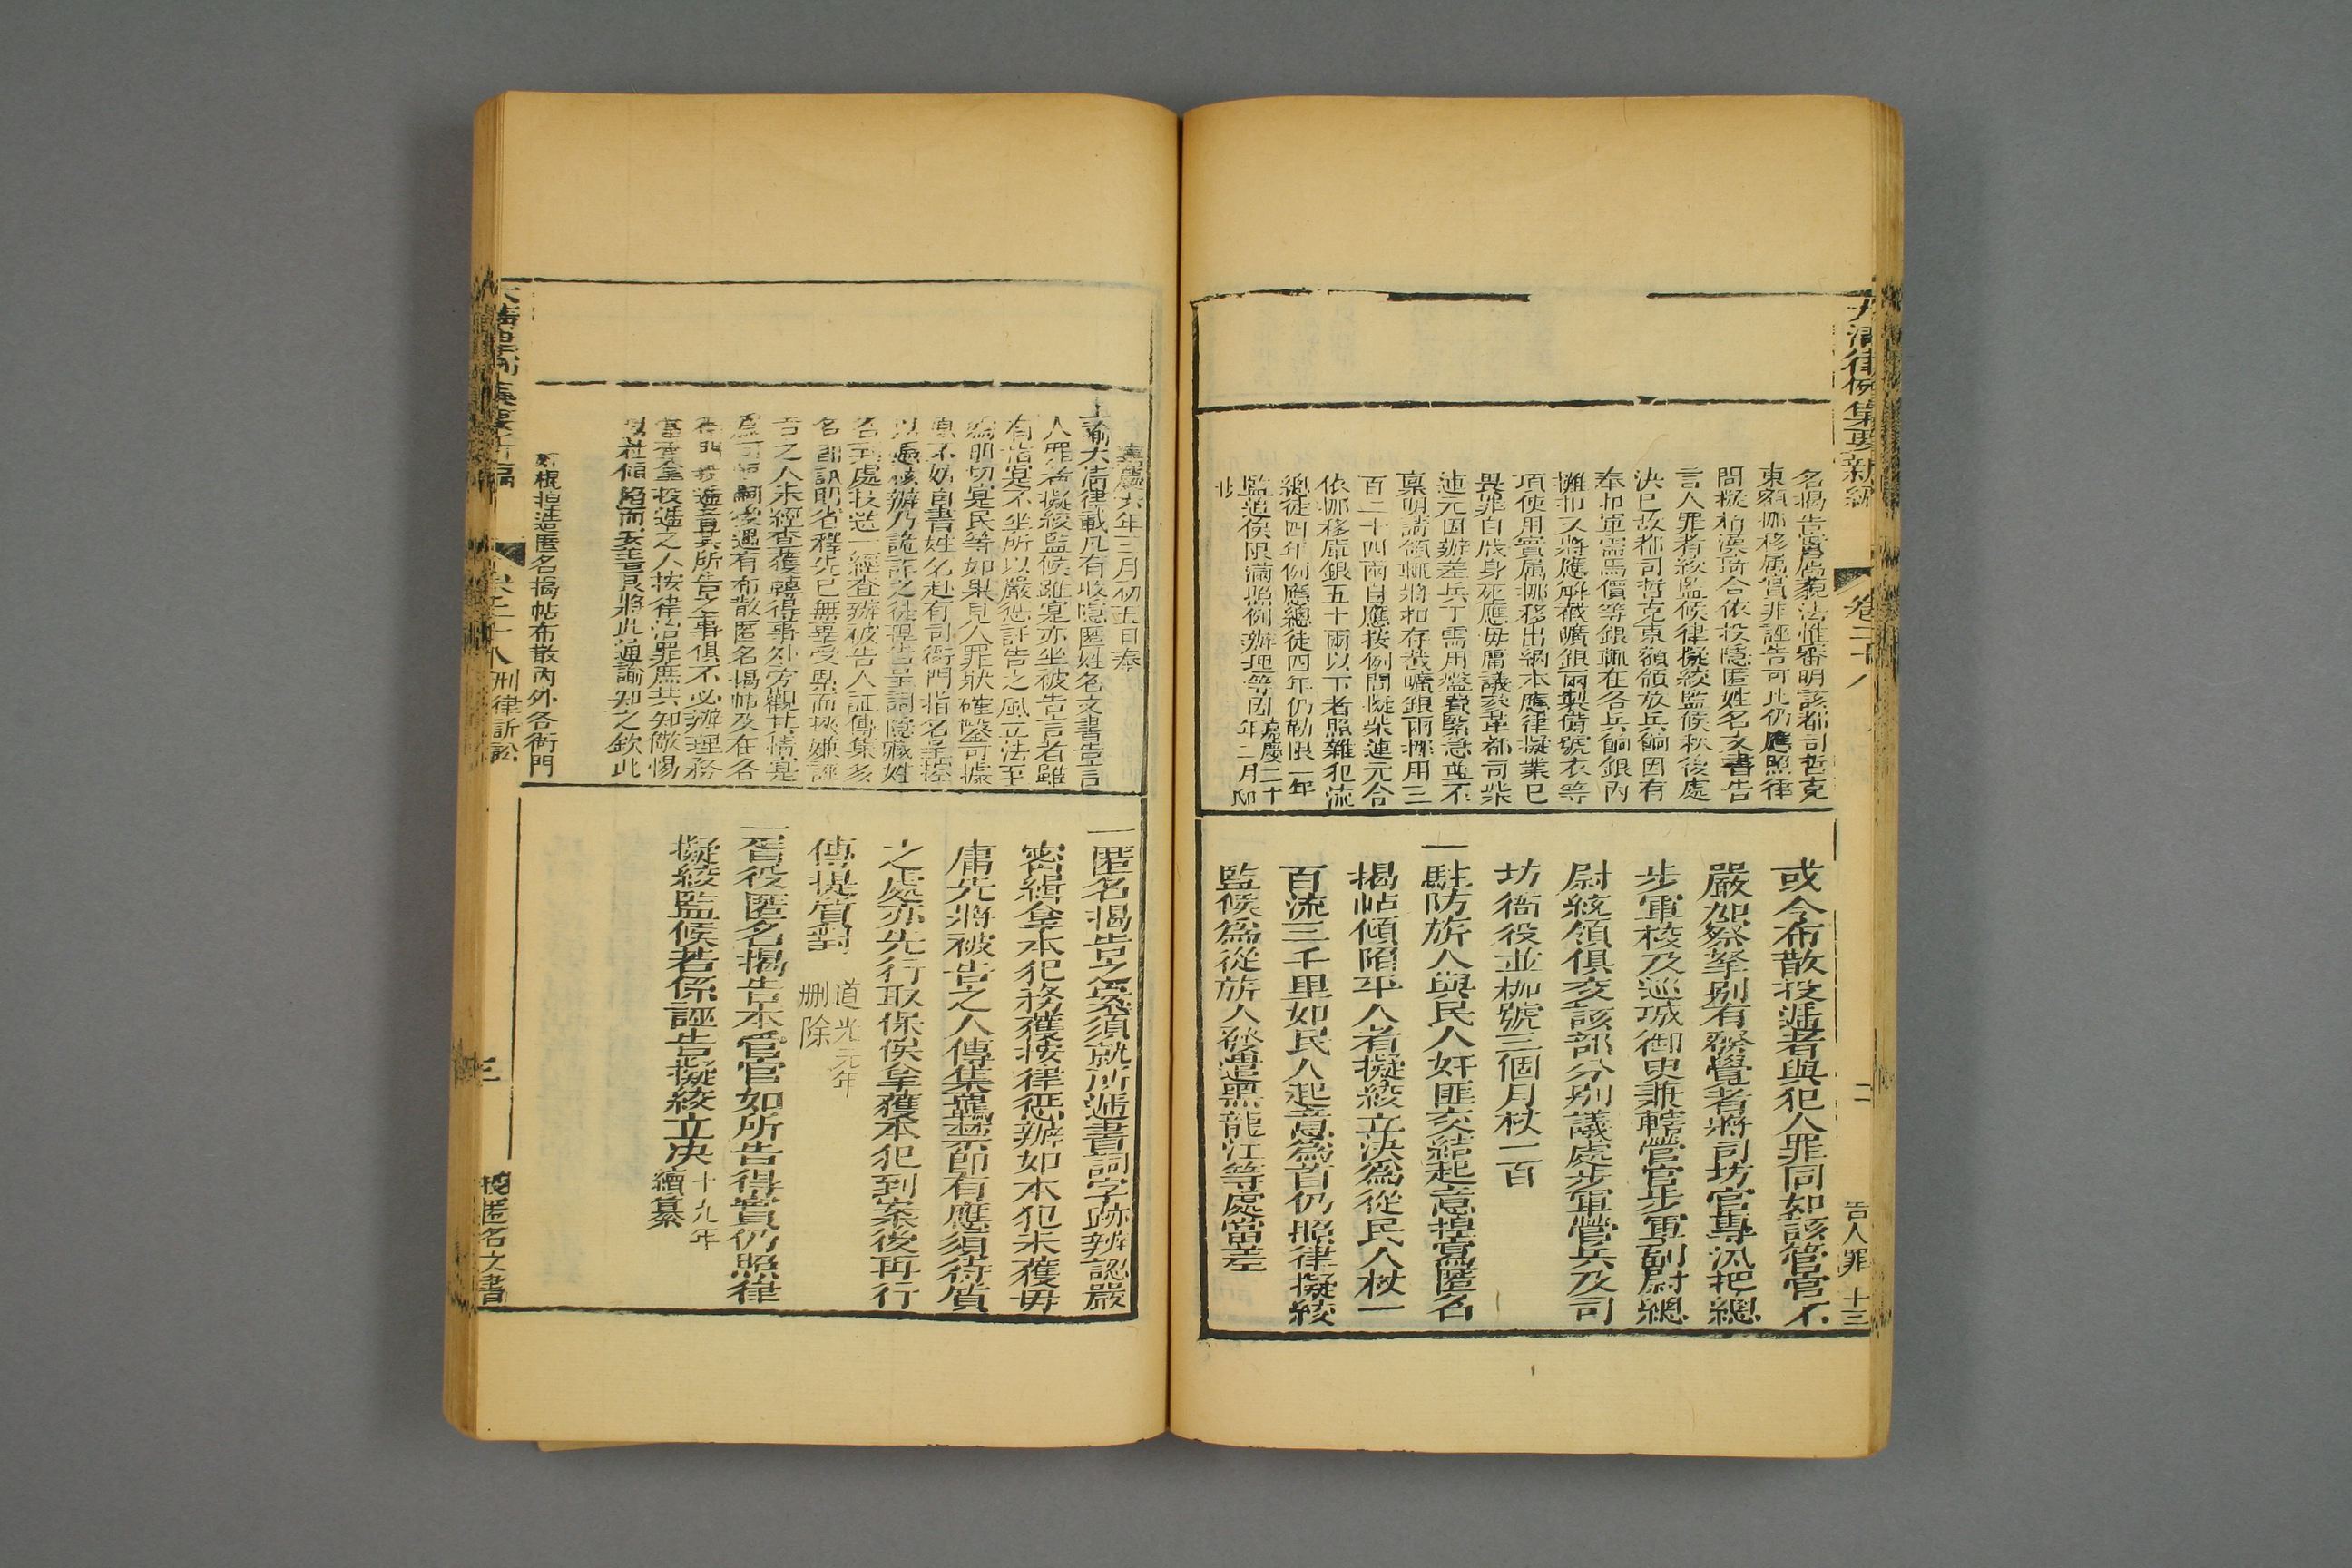 大清律例集要新編
卷二十八
二
告人罪 十三
名揭告嘗屬藐法惟審明該都司哲克
東額挪移属實非誣告可比仍應照律
問擬柏漢琦合依投隱匿姓名文書告
言人罪者絞監候律擬絞監候秋後處
決已故都司哲克東額領放兵餉因有
奉扣軍需馬價等銀輒在各兵餉銀內
攤扣又將應解截曠銀兩製備號衣等
項使用實属挪移出納本應律擬業已
畏罪自戕身死應毋庸議彖革都司柴
連元因辦差兵丁需用盤費緊急並不
稟明請領輒將扣存截曠銀兩挪用三
百二十四兩自應按例問擬柴連元合
依挪移庫銀五十兩以下者照雜犯流
總徒四年例應總徒四年仍勒限一年
監追俟限滿照例辦理等因 嘉慶二十
年二月邸
或令布散投遞者與犯人罪同如該管官不
嚴加察拏别有發覺者將司坊官專汛把總
步軍校及巡城御史兼轄營官步軍副尉總
尉統領俱交該部分别議處步軍營兵及司
坊衙役並枷號三個月杖一百
一駐防旂人與民人奸匪交結起意捏寫匿名
揭帖傾陷平人者擬絞立決為從民人杖一
百流三千里如民人起意為首仍照律擬絞
監候為從旂人發遣黑龍江等處當差
嘉慶六年三月初五日奉
上諭大清律載凡有收隱匿姓名文書告言
人罪者擬絞監候雖寔亦坐被告言者雖
有指寔不坐所以嚴惩訐告之風立法至
為明切寔民等如果見人罪狀確鑿可據
原不妨自書姓名赴有司衙門指名呈控
以憑核辦乃詭詐之徒捏告呈詞隱藏姓
名到處投遞一經查辦被告人証傳集多
名卽訊明省釋先已無辜受累而挾嫌誣
告之人未經查獲轉得事外旁觀其情寔
為可惡嗣後遇有布散匿名揭帖及在各
衙門投遞者其所告之事俱不必辦理務
當查拿投遞之人按律治罪庶共知儆惕
以杜傾陷而安善良將此通諭知之欽此
旂棍捏造匿名揭帖布散內外各衙門
一匿名揭告之案須就所遞書詞字跡辨認嚴
密緝拿本犯務獲按律惩辦如本犯未獲毋
庸先將被告之人傳集羈禁卽有應須待質
之處亦先行取保俟拿獲本犯到案後再行
傳提質對 道光元年
删除
一胥役匿名揭告本管官如所告得實仍照律
擬絞監候若係誣告擬絞立决 十九年
續纂
卷二十八 刑律訴訟
三
投匿名文書